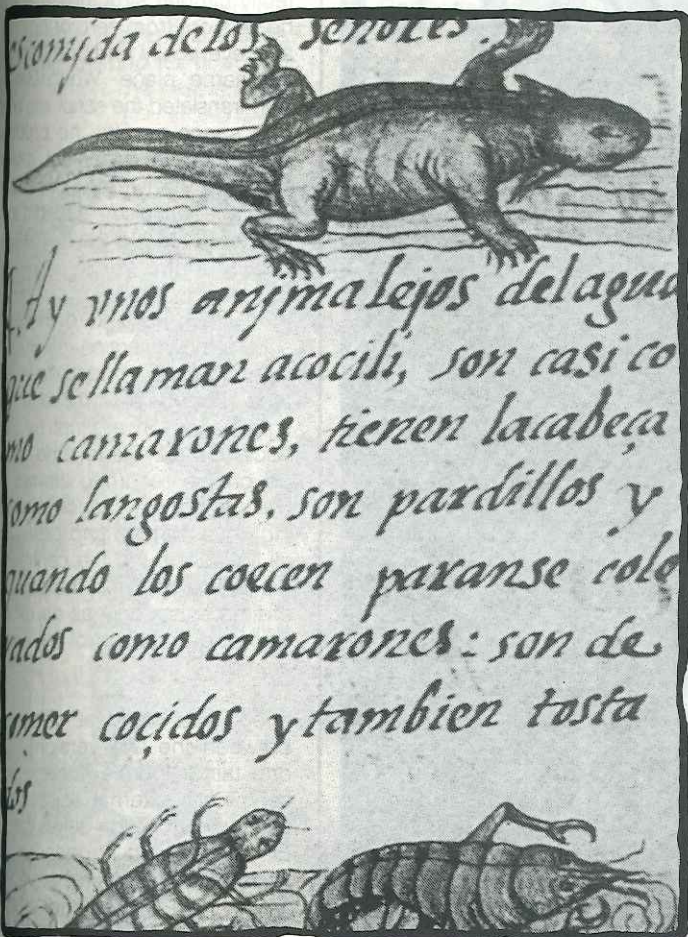 es comjda de los señores.
Ay vnos anjmalejos del agua
que se llaman acocili, son casi co
mo camarones, tienen la cabeça
como langostas, son pardillos y
quando los coecen paranse colo
rados como camarones: son de
comer coçidos y tambien tosta
dos